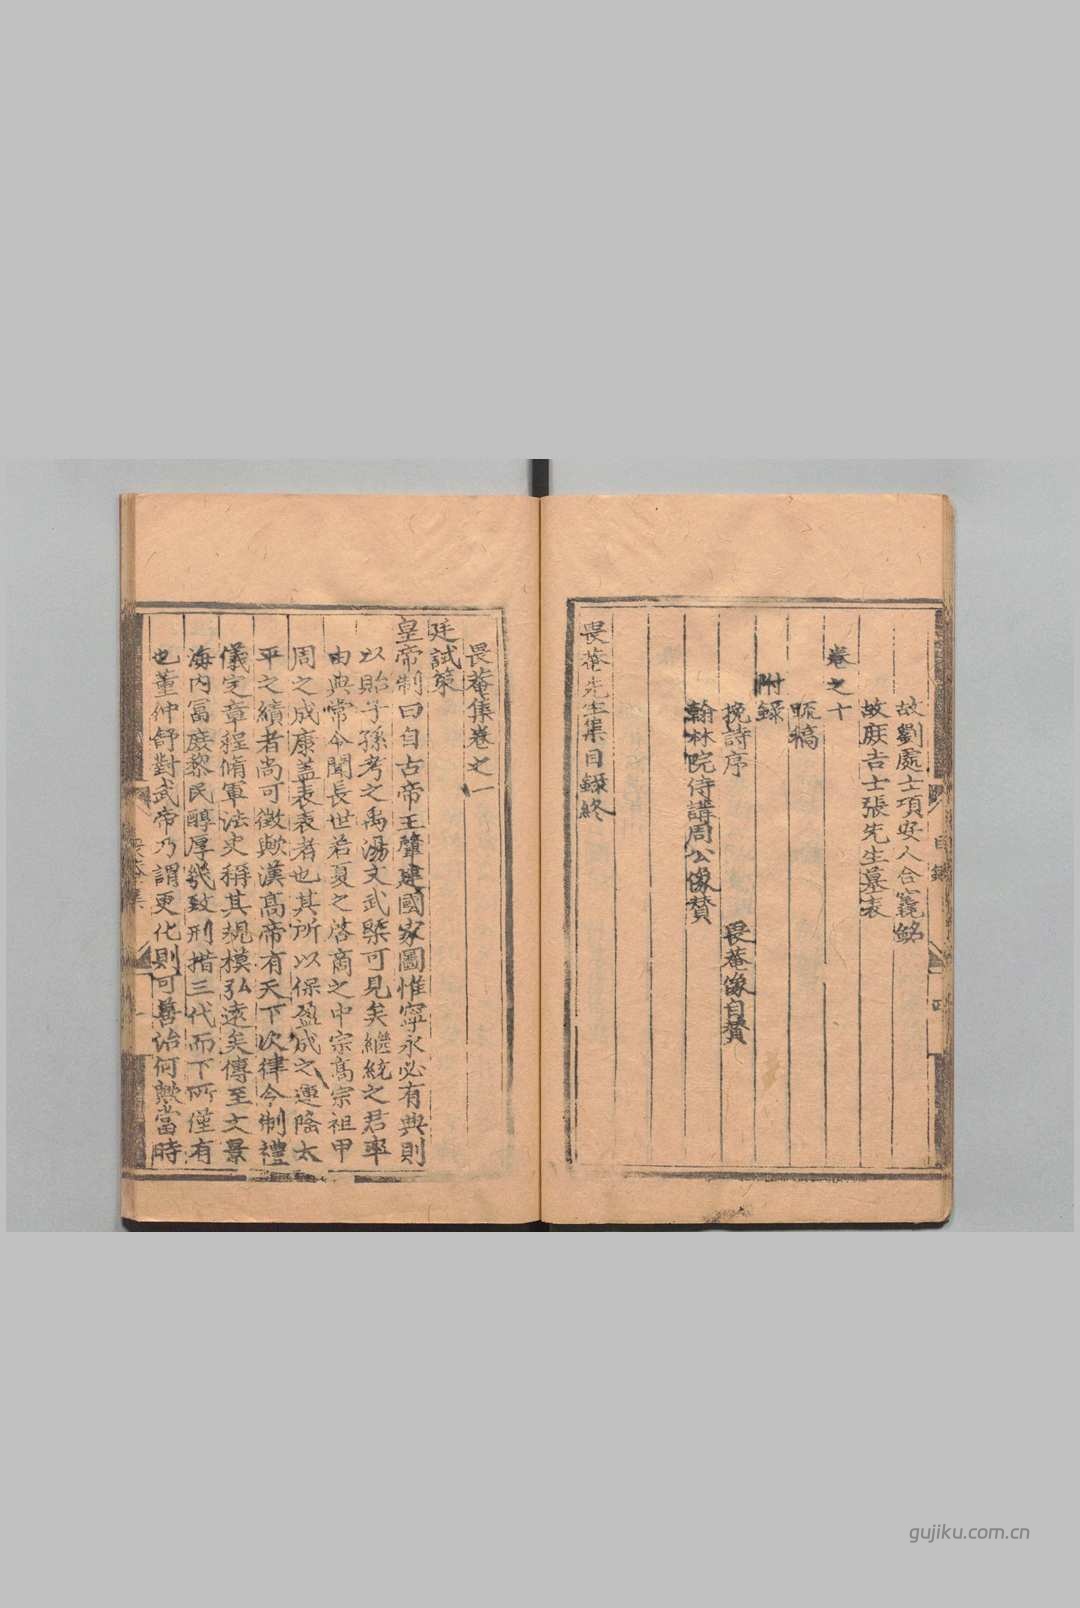 故劉處士項安人合窆銘
故庶吉士張先生墓表
卷之十
甌稿
附錄
挽詩序　畏菴像自贊
翰林院侍講周公像贊
畏菴先生集目錄終
目錄
畏菴集卷之一
廷試策
皇帝制曰自古帝王肇建國家圖惟寧永必有典則
以貽子孫考之禹湯文武槩可見矣繼統之君率
由典常令聞長世若夏之啓商之中宗高宗祖甲
周之成康盖表表者也其所以保盈成之運隆太
平之績者尚可徵歟漢髙帝有天下次律令制禮
儀定章程脩軍法史稱其規模弘遠矣傳至文景
海內冨庶黎民醇厚幾致刑措三代而下所僅有
也董仲舒對武帝乃謂更化則可善治何歟當時
gujiku.com.cn